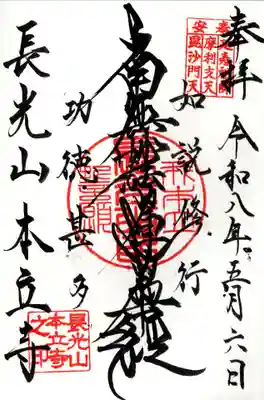 奉拝
令和八年五月六日
如説修行
南無妙法蓮華経
功徳甚多
長光山 本立寺
摩利支天
安置毘沙門天
長光山
本立寺
之印